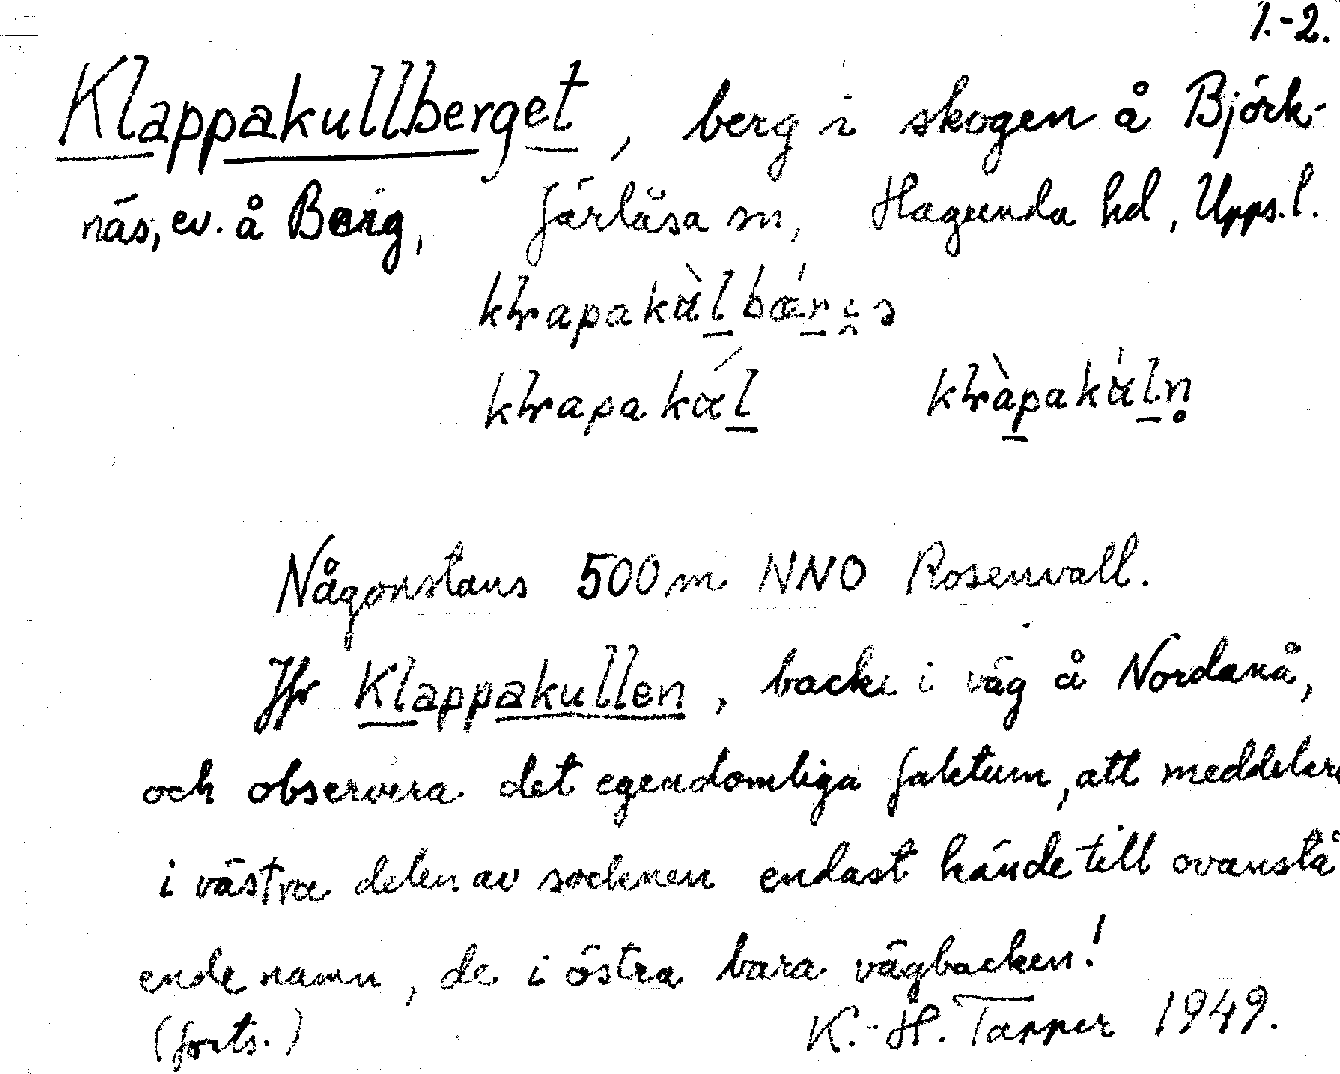 1.-2.
Klappakullberget, berg i skogen å Björk-
näs, ev. å Berg, Järlåsa sn, Hagunda hd, Upps. l.
Någonstans 500 m NNO Rosenvall.
Jfr Klappakullen, backe i väg å Nordanå,
och observera det egendomliga faktum, att meddelare
i västra delen av socknen endast kände till ovanstå
ende namn, de i östra bara vägbacken!
(forts.) K.-H. Tapper 1949.